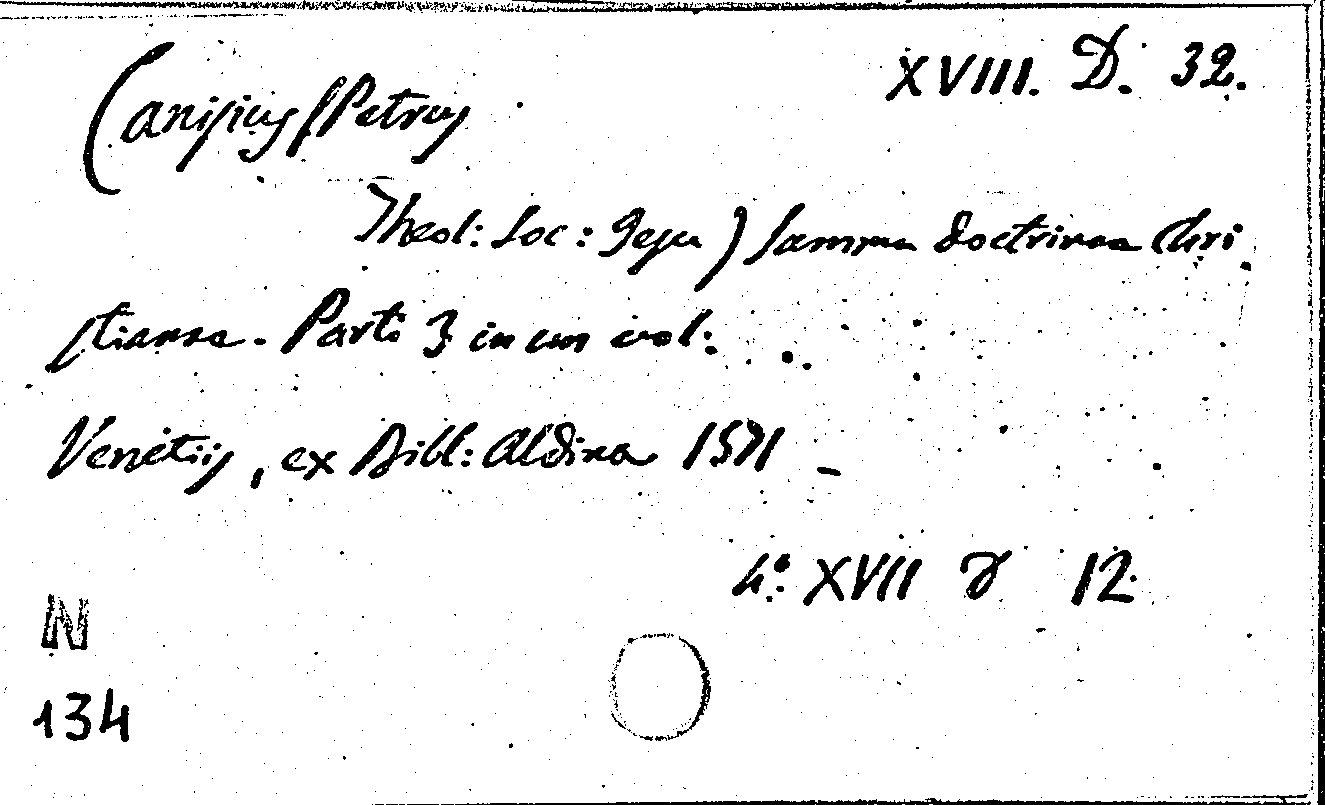 XVIII. D. 32.
Canisius (Petrus
Theol: Soc: Jesu) Summa doctrinae Chri
stianae. Parti 3 in un vol:
Venetijs, ex Bibl: Aldina 1571
4º XVII δ 12
N
134